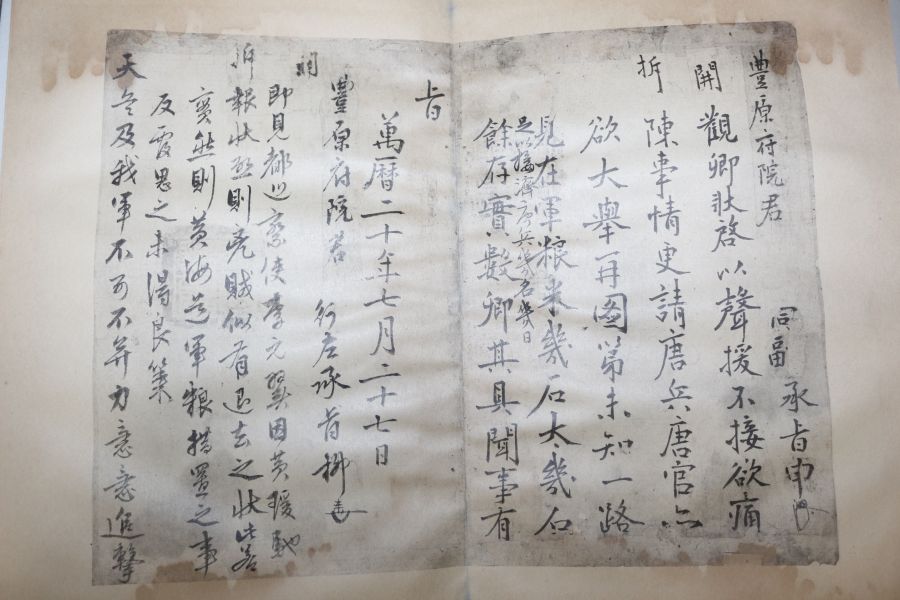 豊原府院君
同副承旨申
開
觀卿狀啓以聲援不接欲痛
拆
陳事情更請唐兵唐官亦
欲大擧再圖第未知一路
見在軍粮米幾石太幾石
足以接濟唐兵幾名幾日
餘存實數卿其具聞事有
旨
萬曆二十年七月二十七日
豊原府院君 行左承旨柳
開
卽見都巡察使李元翼因黃瑗馳
拆
報狀啓則兇賊似有退去之狀此若
實然則黃海道軍粮措置之事
反覆思之未得良策
天兵及我軍不可不幷力急急進擊